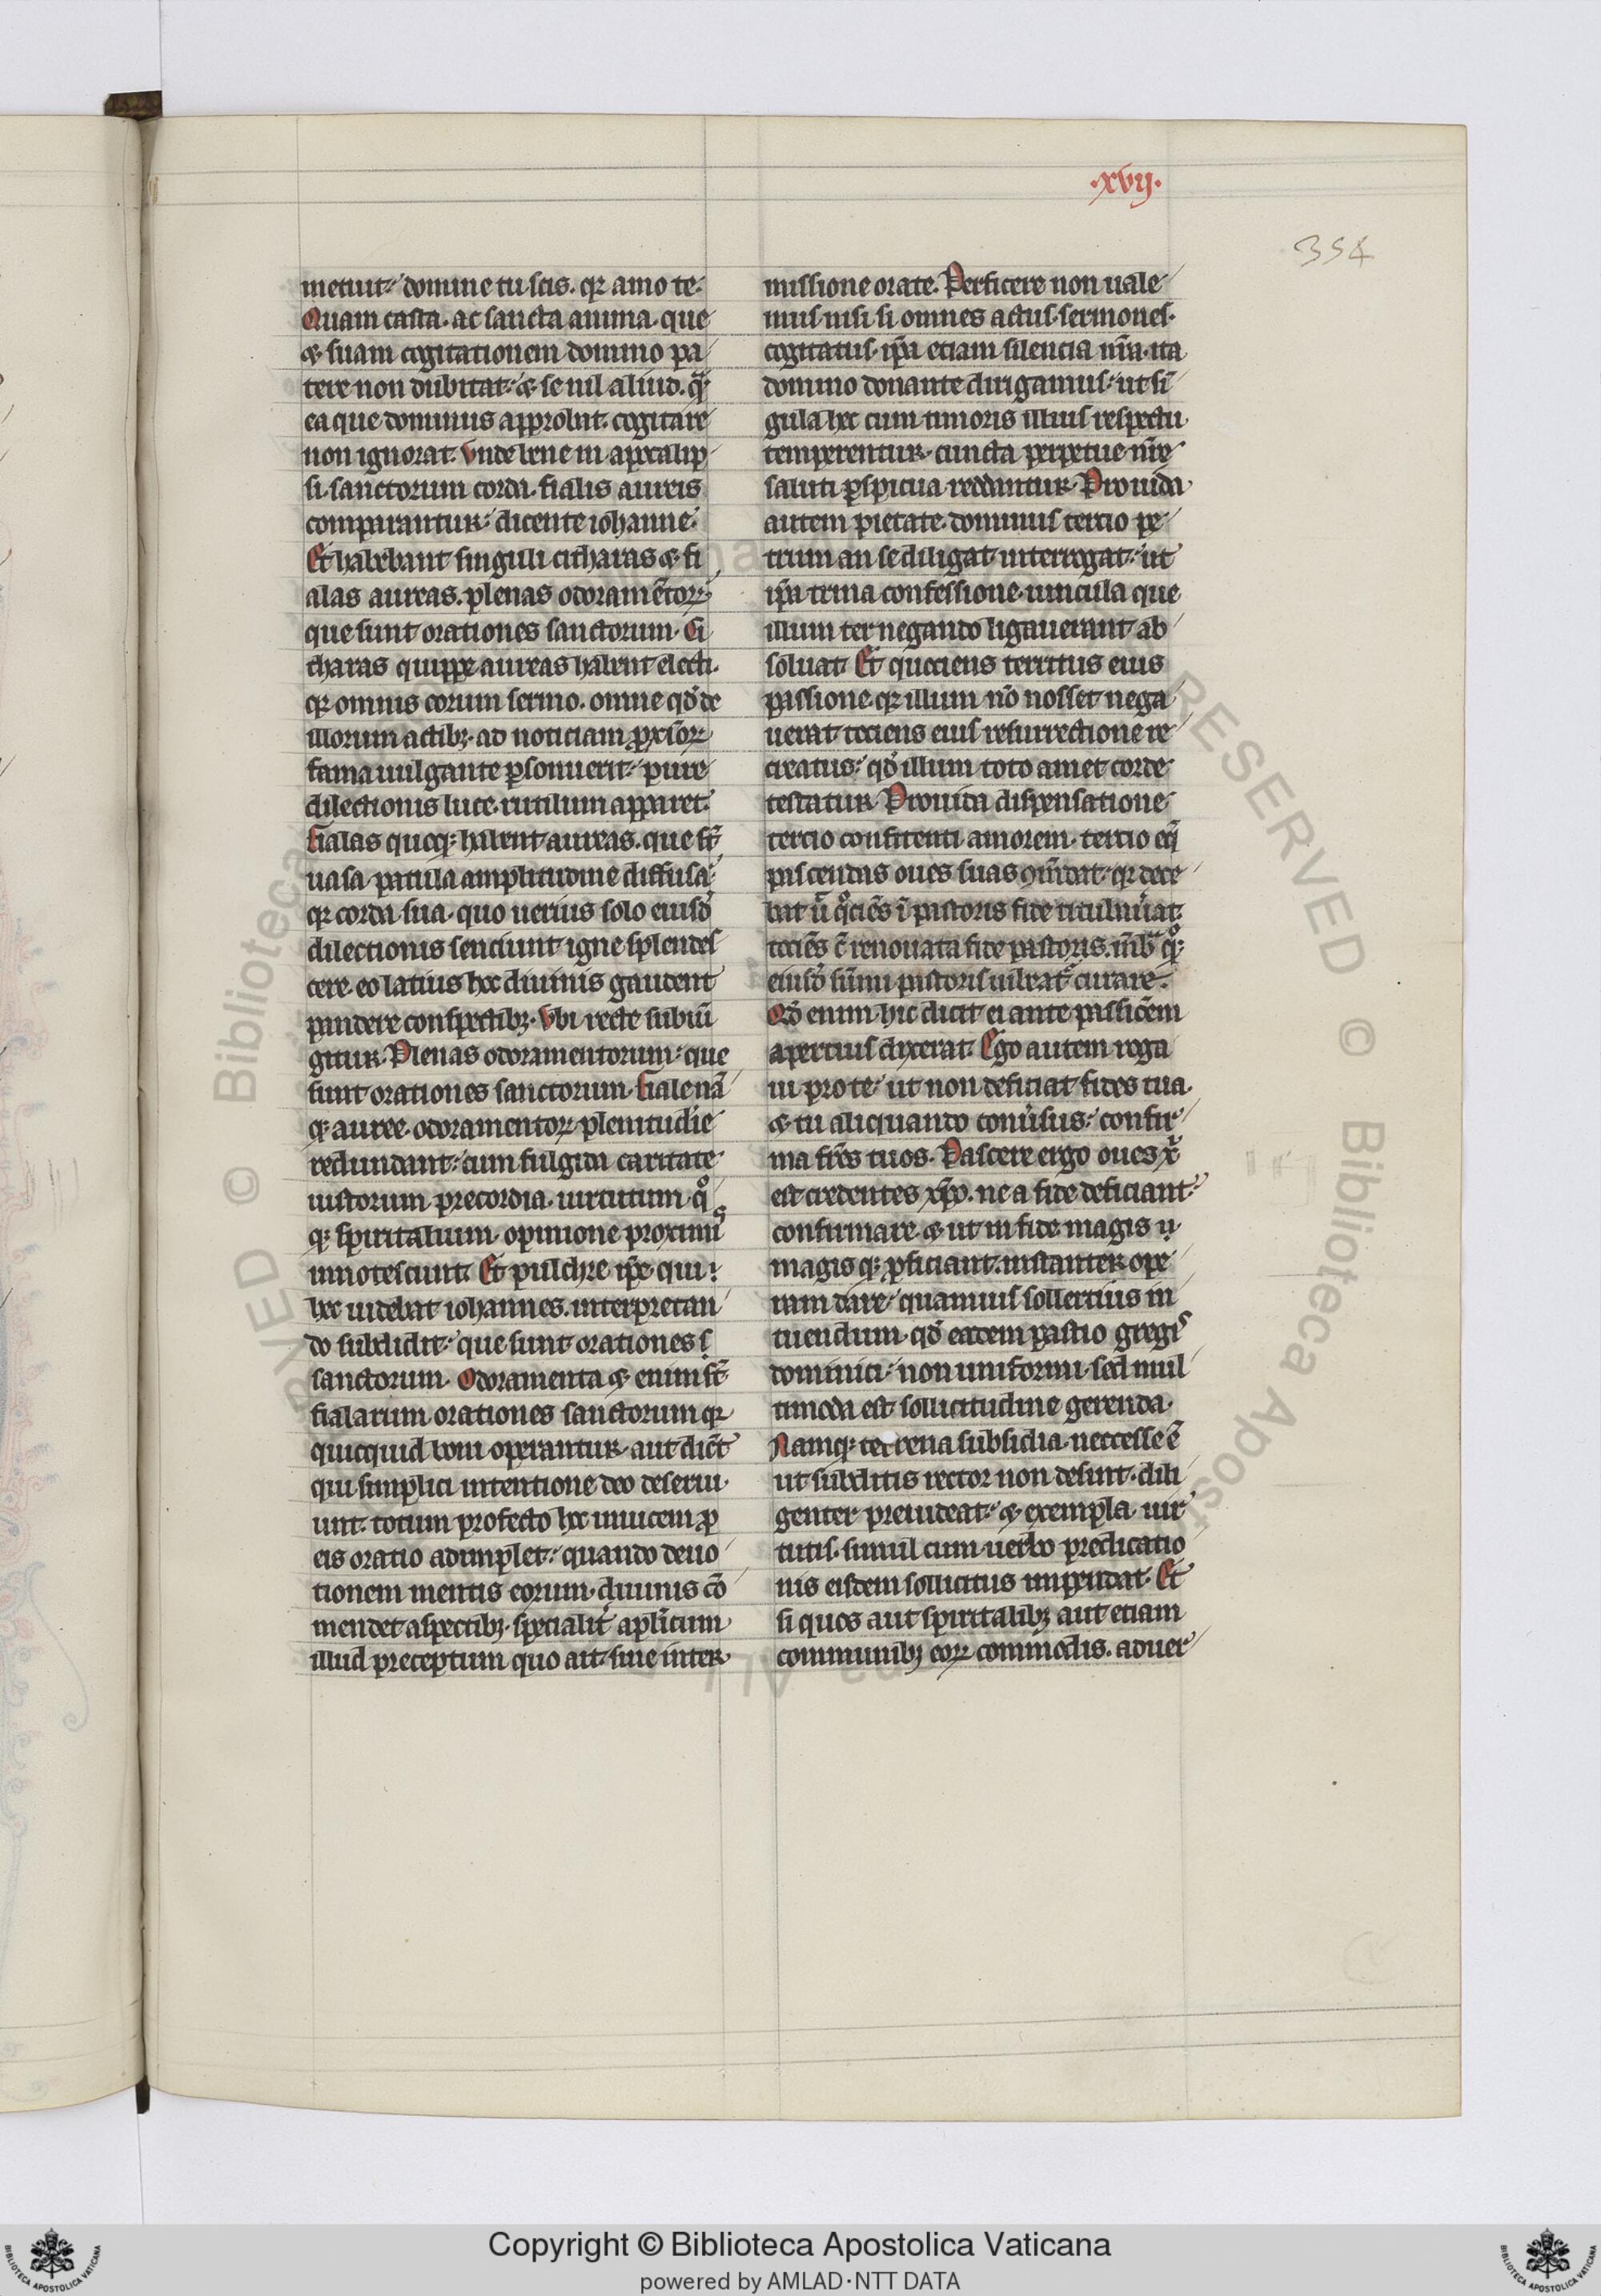 ·xvij·
354
metuit: domine tu scis. qr amo te.
Quam casta. ac sancta anima. que
& suam cogitationem domino pa
tere non dubitat: & se nil aliud. qm̄
ea que dominus approbat. cogitare
non ignorat. Unde bene in apocalip
si. sanctorum corda. fialis aureis
comparantur: dicente iohanne.
Et habebant singuli citharas & fi
alas aureas. plenas odoramētoꝝ:
que sunt orationes sanctorum. Ci
tharas quippe aureas habent electi.
qr omnis eorum sermo. omne qd̄ de
illorum actibꝫ. ad noticiam ꝓximoꝝ
fama uulgante ꝑsonuerit: pure
dilectionis luce. rutilum apparet.
Fialas quoqꝫ habent aureas. que st̄
uasa patula amplitudine diffusa.
qr corda sua. quo uerius solo eiusd̄
dilectionis senciunt igne splendes
cere. eo latius hec diuinis gaudent
pandere conspectibꝫ. Ubi recte subiū
gitur. Plenas odoramentorum: que
sunt orationes sanctorum. Fiale nā
qꝫ auree. odoramentoꝝ plenitudīe
redundant: cum fulgida caritate
iustorum precordia. uirtutum. qͦ
qꝫ spiritalium. opinione proximis
innotescunt. Et pulchre ip̄e qui
hec uidebat iohannes. interpretan
do subdidit: que sunt orationes s
sanctorum. Odoramenta & enim st̄
fialarum orationes sanctorum qr
quicquid boni operantur. aut dic̄t
qui simplici intentione deo deserui
unt. totum profecto hec inuicem ꝓ
eis oratio adimplet: quando deuo
tionem mentis eorum. diuinis cō
mendet aspectibꝫ. specialit̄ apl̄icum
illud preceptum quo ait. sine inter
missione orate. Perficere non uale
mus. nisi si omnes actus. sermones.
cogitatus. ip̄a etiam silencia nr̄a. ita
domino donante dirigamus: ut sī
gula hec cum timoris illius respectu
temperentur. cuncta perpetue nr̄e
saluti ꝑspicua reddantur. Prouida
autem pietate. dominus tercio pe
trum an se diligat interrogat: ut
ip̄a trina confessione. uincula que
illum ter negando ligauerant ab
soluat. Et quociens territus eius
passione. qr illum nō nosset nega
uerat. tociens eius resurrectione re
creatus: qd̄ illum toto amet corde
testatur. Prouida dispensatione
tercio confitenti amorem. tercio eq̄
pascendas oues suas ꝯmdat. qr dece
bat ū qͦciēs ī pastoris fide titubau̅at.
tociēs c̄ renouata fide pastoris. mēb qͦqꝫ
eiusd̄ sūmi pastoris iubeat̄ curare.
Qd̄ enim hic dicit ei ante passiōem
apertius dixerat. Ego autem roga
ui pro te: ut non deficiat fides tua.
& tu aliquando conūsus: confir
ma frēs tuos. Pascere ergo oues xp̄i
est credentes xp̄o. ne a fide deficiant:
confirmare. & ut in fide magis u
magis qꝫ ꝓficiant. instanter ope
ram dare. quamuis sollertius in
tuendum. qd̄ eadem pastio gregis
dominici: non uniformi. sed mul
timoda est sollicitudine gerenda.
Namqꝫ terrena subsidia. neccesse ē
ut subditis rector non desint. dili
genter preuideat: & exempla. uir
tutis. simul cum uerbo predicatio
nis eisdem sollicitus impendat. Et
si quos aut spiritalibꝫ aut etiam
communibꝫ eoꝝ commodis. aduer
Copyright © Biblioteca Apostolica Vaticana
powered by AMLAD·NTT DATA